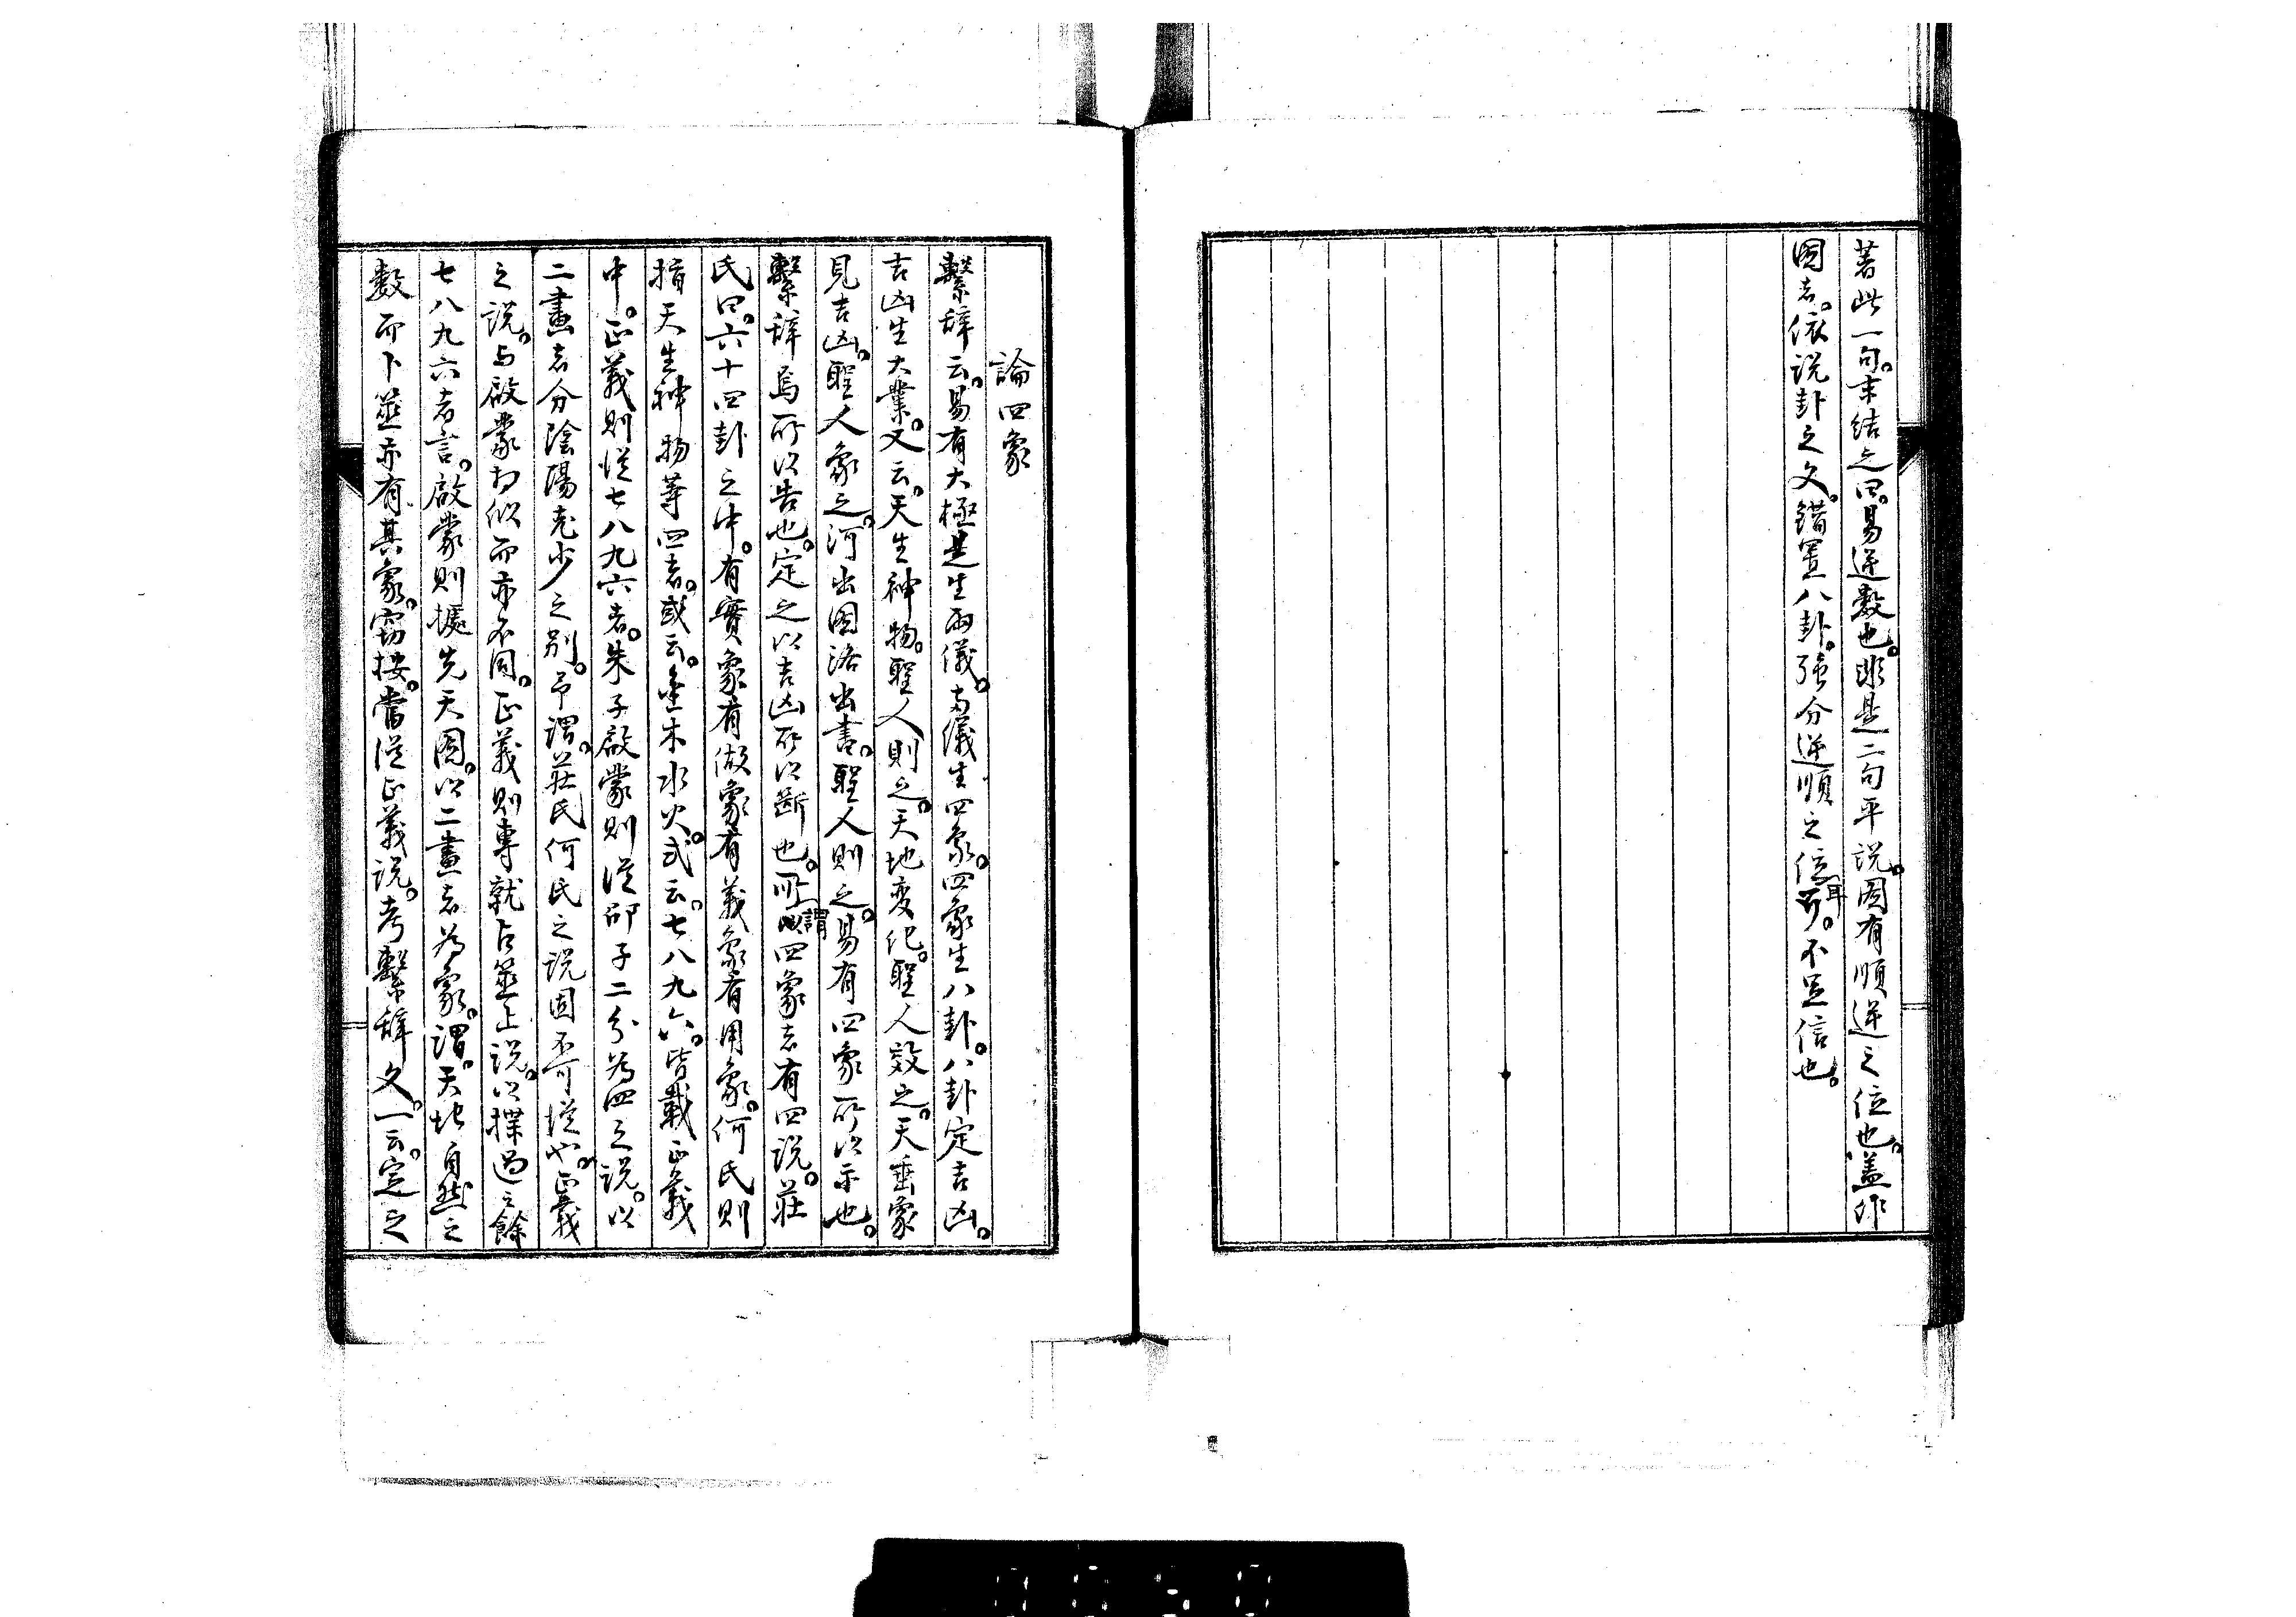 著此一句。末結之曰。易逆數也。非是二句平說。圖有順逆之位也。蓋作
圖者。依說卦之文。錯置八卦。強分逆順之位耳。不足信也。
論四象
繫辭云。易有大極是生兩儀。兩儀生四象。四象生八卦。八卦定吉凶。
吉凶生大業。又云。天生神物。聖人則之。天地変化。聖人效之。天垂象
見吉凶。聖人象之。河出圖洛出書。聖人則之。易有四象所以示也。
繫辞焉所以告也。定之以吉凶所以断也。所謂四象者有四說。莊
氏曰。六十四卦之中。有實象有假象有義象有用象。何氏則
指天生神物等四者。或云。金木水火。或云。七八九六。皆載正義
中。正義則從七八九六者。朱子啟蒙則從邵子二分為四之說。以
二畫者分陰陽老少之別。予謂。莊氏何氏之說固不可從也。正義
之說。与啟蒙相似而亦不同。正義則專就占筮上說。以揲過之餘
七八九六者言。啟蒙則據先天圖。以二畫者為象。謂。天地自然之
數而卜筮亦有其象。窃按。當從正義說。考繫辞文。一云。定之